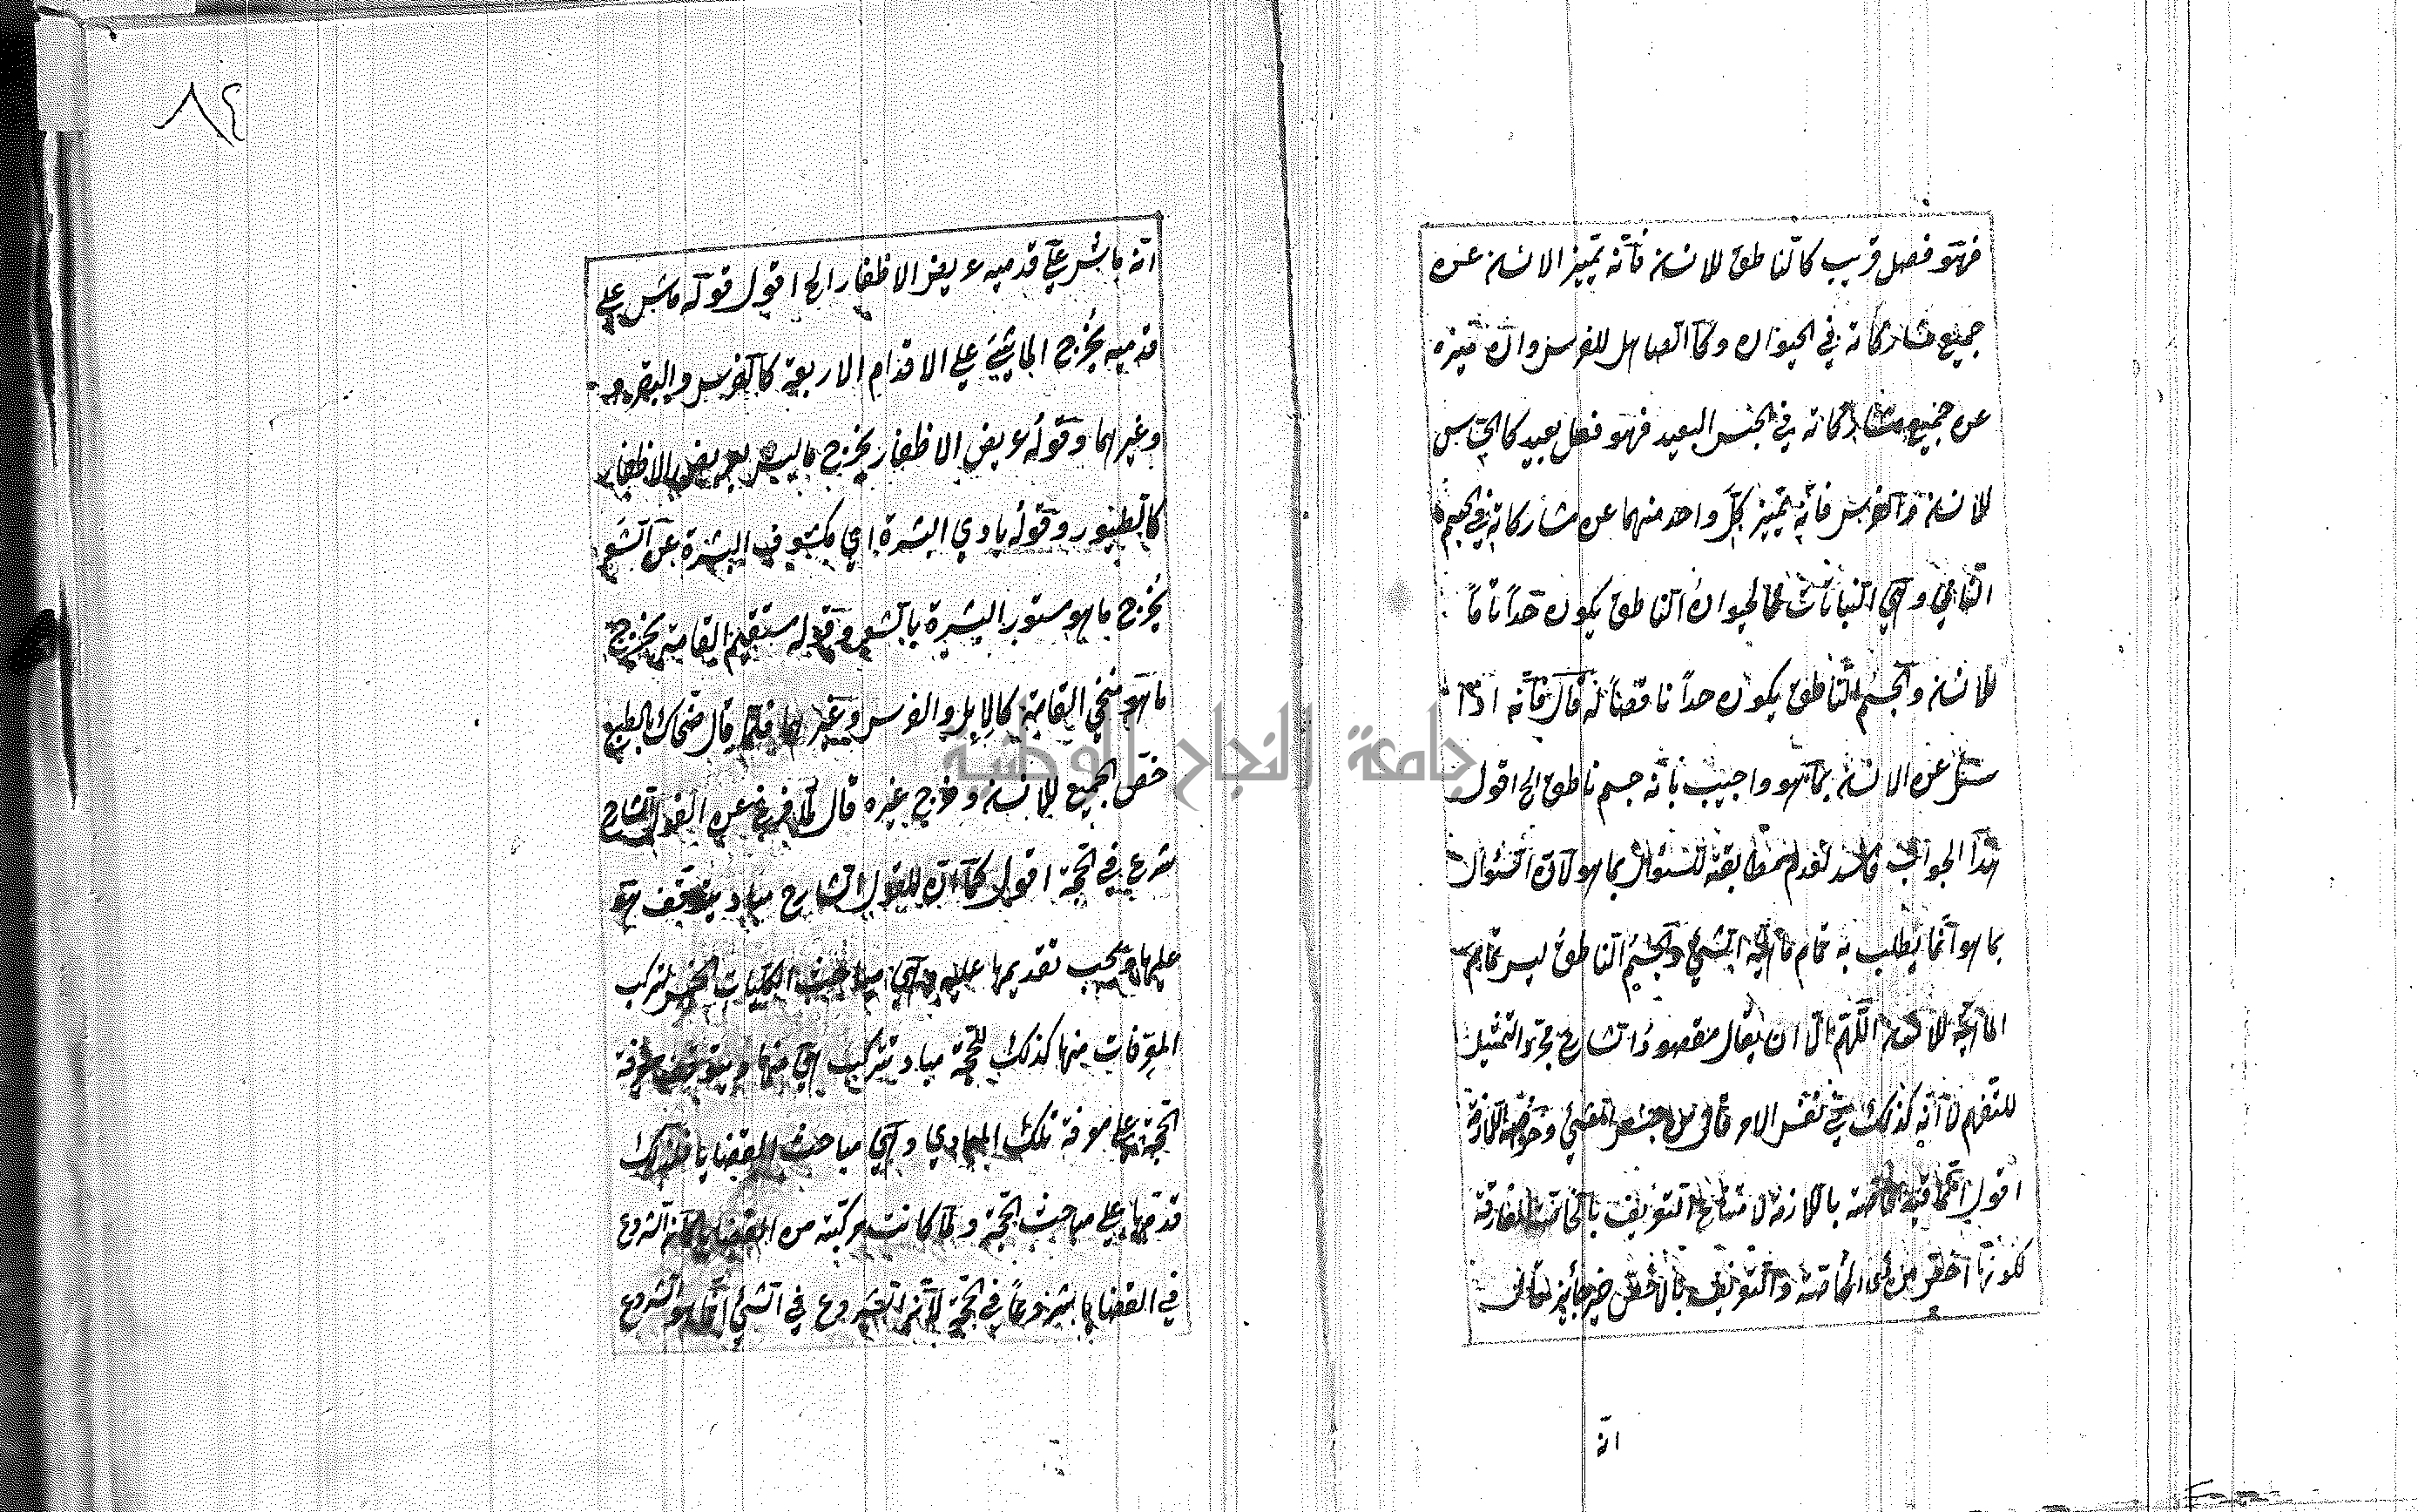 فهو فصل قريب كالناطق للانسان فانه يميز الانسان عن
جميع مشاركاته في الحيوان وكا الصاهل للفرس وان ميزه
عن جميع مشاركاته في الجنس البعيد فهو فصل بعيد كالحساس
للانسان والفرس فانه يميز كل واحد منهما عن مشاركاته في الجسم
النامي وهي النباتات فالحيوان الناطق يكون حداً تاماً
للانسان والجسم الناطق يكون حداً ناقصاً له قال فانه اذا
سئل عن الانسان بما هو واجيب بانه جسم ناطق الخ اقول
هذا الجواب فاسد لعدم مطابقته للسئوال بما هو لان السئوال
بما هو انما يطلب به تمام ماهية الشئ والجسم الناطق ليس تمام
الماهية للانسان اللهم الا ان يقال مقصود الشارح مجرد التمثيل
للتفهم لا انه كذلك في نفس الامر قال من جنس الشئ وخواصه اللازمة
اقول الخاصة باللازمة لامتناع التعريف بالخاصة المفارقة
لكونها اخص من الخاصة والتعريف بالاخص غير جائز قال
انه
٨٤
انه ماش علي قدميه عريض الاظفار الخ اقول قوله ماش علي
قدميه يخرج الماشي علي الاقدام الاربعة كالفرس والبقر و
وغيرهما وقوله عريض الاظفار يخرج ما ليس بعريض الاظفار
كالطيور وقوله بادي البشرة اي مكشوف البشرة عن الشعر
يخرج ما هو مستور البشرة بالشعر وقوله مستقيم القامة يخرج
ما هو منحني القامة كالابل والفرس وغيرهما فلما قال ضحاك بالطبع
خص الجميع للانسان وخرج غيره قال لما فرغ عن القول الشارح
شرع في الحجة اقول كما ان للقول الشارح مباد يتوقف هو
عليها ويجب تقديمها عليه وهي مباحث الكليات الخمس لتركب
المعرفات منها كذلك للحجة مباد تتركب هي منها ويتوقف معرفة
الحجة علي معرفة تلك المبادي وهي مباحث القضايا فلذلك
قدمها علي مباحث الحجة ولما كانت مركبة من القضايا كان الشروع
في القضايا شروعاً في الحجة لان الشروع في الشئ انما هو الشروع
جامعة النجاح الوطنية